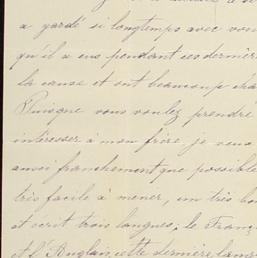 a gardé si longtemps avec vou
qu'il a eus pendant ces derniè
la cause et ont beaucoup cha
Puisque vous voulez prendre
intéresser à mon frère je vous
aussi franchement que possible
très facile à mener, un très bo
et écrit trois langues, le Franç
et l'Anglais, cette dernière lang